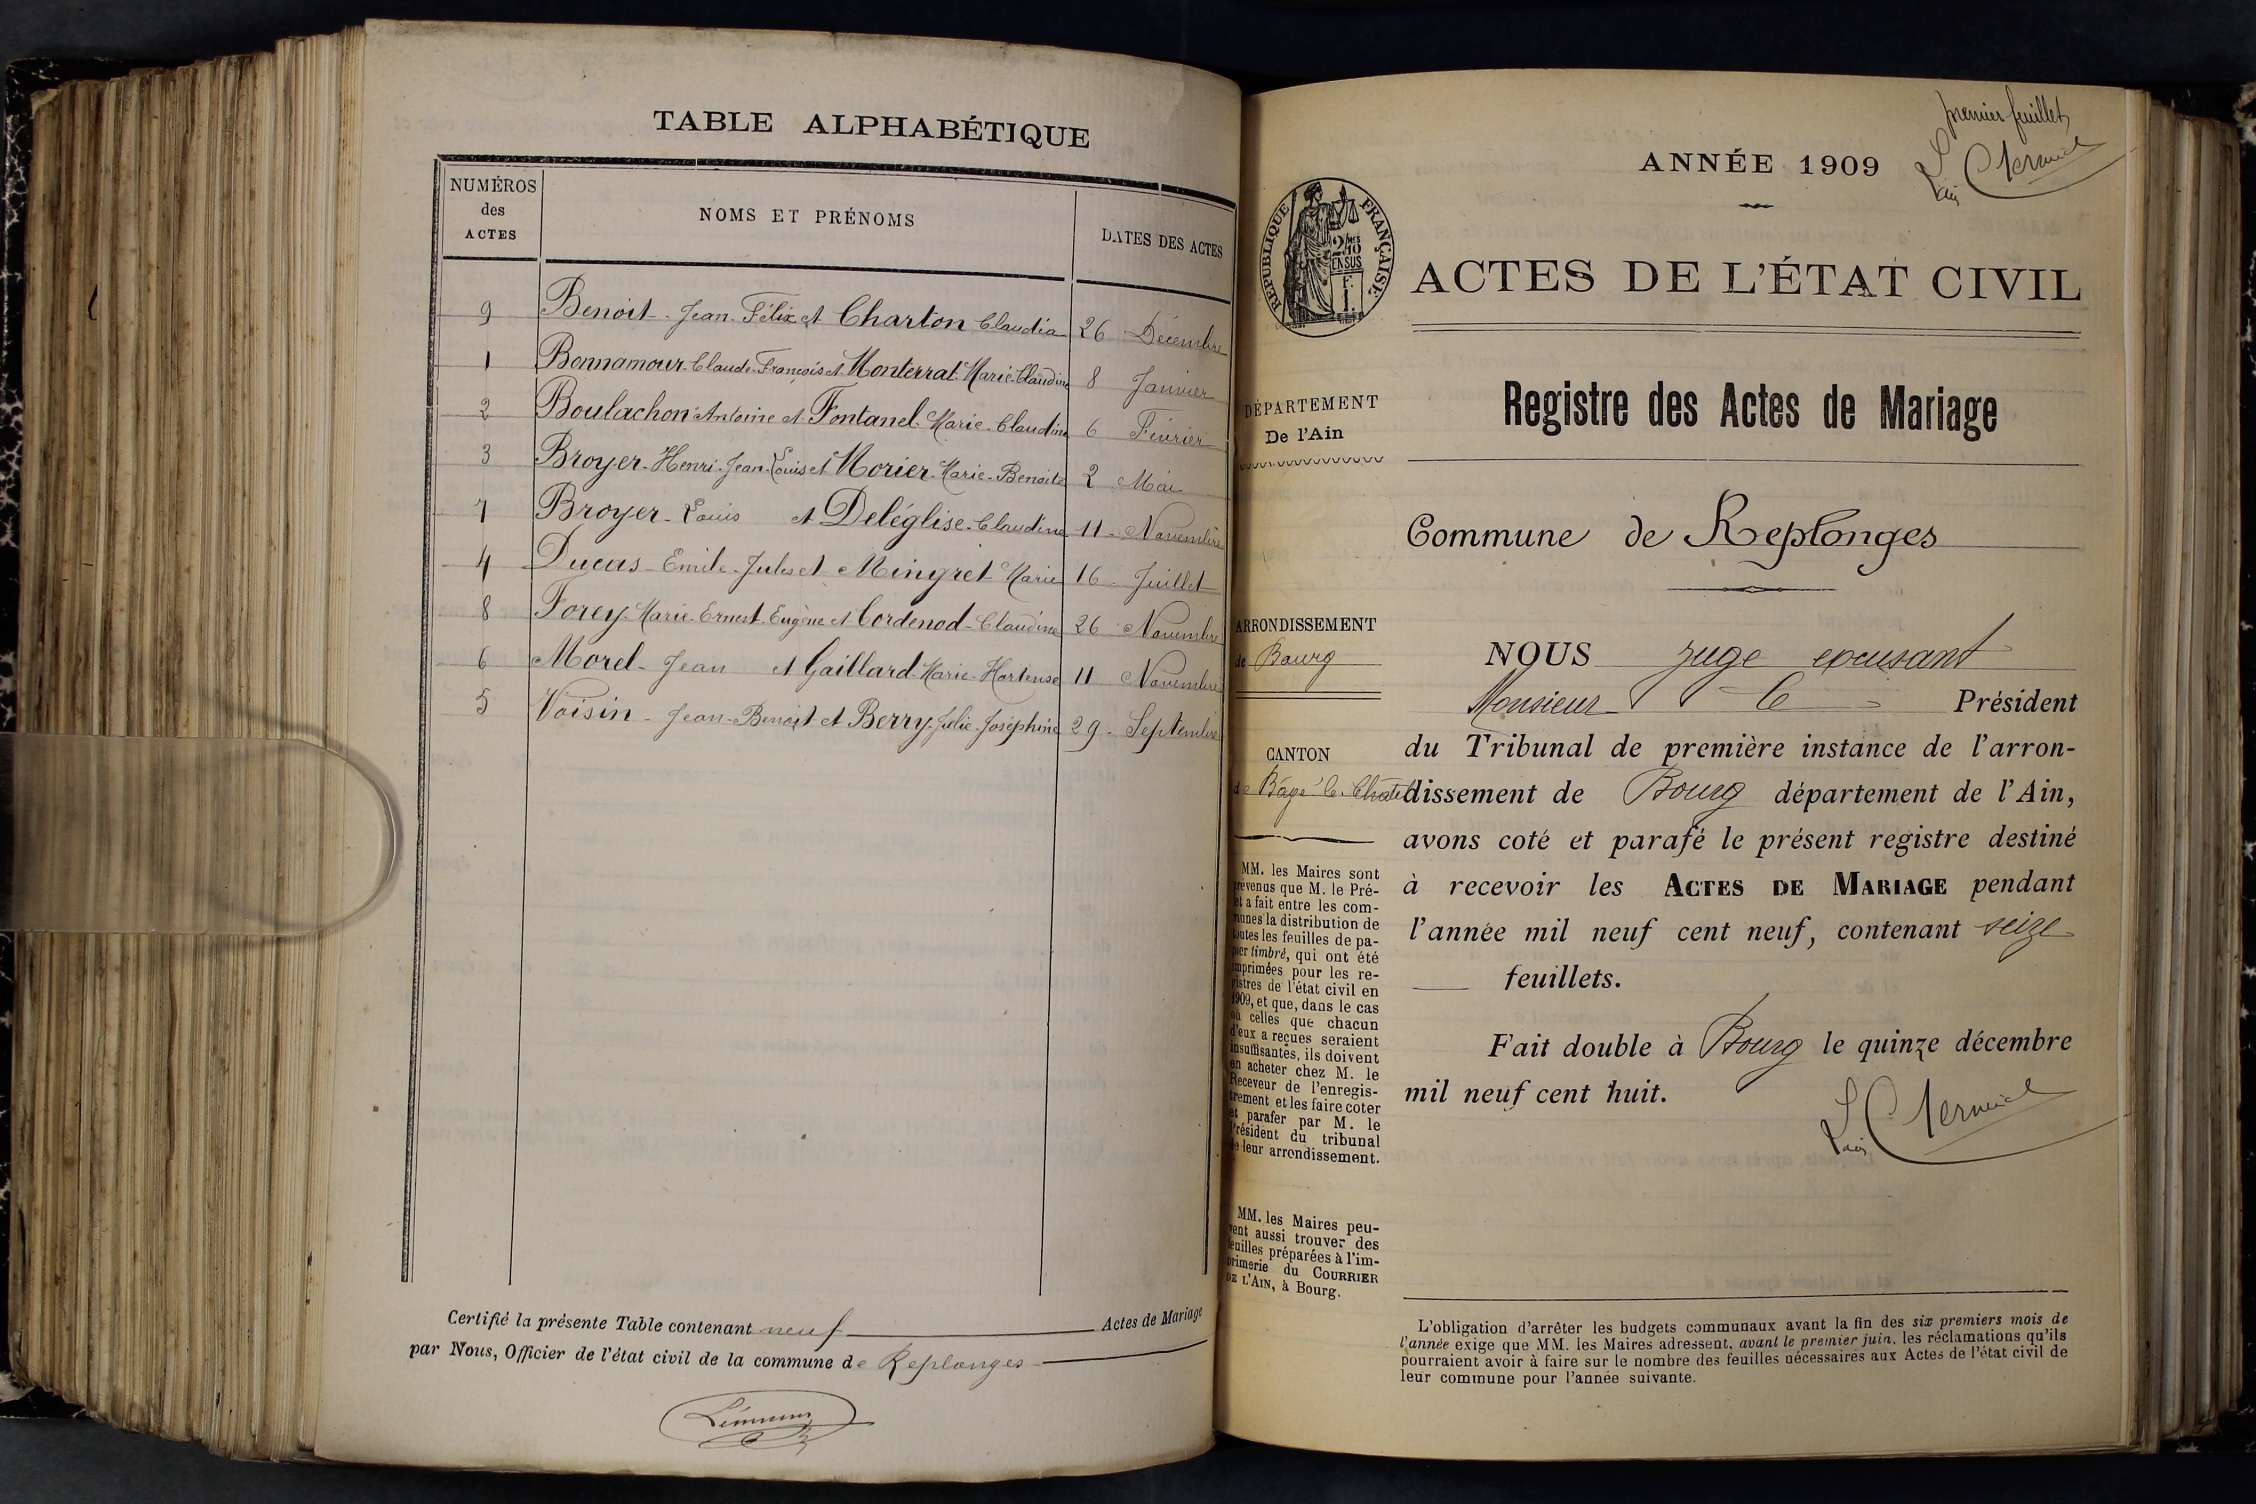 TABLE ALPHABÉTIQUE
NUMÉROS des ACTES
NOMS ET PRÉNOMS
DATES DES ACTES
9 Benoit Jean Félix et Charton Claudia 26 Décembre
1 Bonnamour Claude François et Monterrat Marie Claudine 8 Janvier
2 Boulachon Antoine et Fontanel Marie Claudine 6 Février
3 Broyer Henri Jean Louis et Morier Marie Benoite 2 Mai
7 Broyer Louis et Deléglise Claudine 11 Novembre
4 Ducas Emile Jules et Mingret Marie 16 Juillet
8 Forey Marie Ernest Eugène et Cordenod Claudine 26 Novembre
6 Morel Jean et Gaillard Marie Hortense 11 Novembre
5 Voisin Jean Benoit et Berry Julie Joséphine 29 Septembre
Certifié la présente Table contenant neuf Actes de Mariage
par Nous, Officier de l'état civil de la commune de Replonges
premier feuillet
ANNÉE 1909
RÉPUBLIQUE FRANÇAISE
ACTES DE L'ÉTAT CIVIL
Registre des Actes de Mariage
DÉPARTEMENT
De l'Ain
Commune de Replonges
ARRONDISSEMENT
de Bourg
CANTON
de Bâgé le Châtel
MM. les Maires sont
prévenus que M. le Pré-
et a fait entre les com-
munes la distribution de
toutes les feuilles de pa-
pier timbré, qui ont été
imprimées pour les re-
gistres de l'état civil en
1909, et que, dans le cas
où celles que chacun
d'eux a reçues seraient
insuffisantes, ils doivent
en acheter chez M. le
Receveur de l'enregis-
trement et les faire coter
et parafer par M. le
Président du tribunal
de leur arrondissement.
MM. les Maires peu-
vent aussi trouver des
feuilles préparées à l'im-
primerie du COURRIER
DE L'AIN, à Bourg.
NOUS juge excusant
Monsieur le Président
du Tribunal de première instance de l'arron-
dissement de Bourg département de l'Ain,
avons coté et parafé le présent registre destiné
à recevoir les ACTES DE MARIAGE pendant
l'année mil neuf cent neuf, contenant seize
feuillets.
Fait double à Bourg le quinze décembre
mil neuf cent huit.
L'obligation d'arrêter les budgets communaux avant la fin des six premiers mois de
l'année exige que MM. les Maires adressent, avant le premier juin, les réclamations qu'ils
pourraient avoir à faire sur le nombre des feuilles nécessaires aux Actes de l'état civil de
leur commune pour l'année suivante.